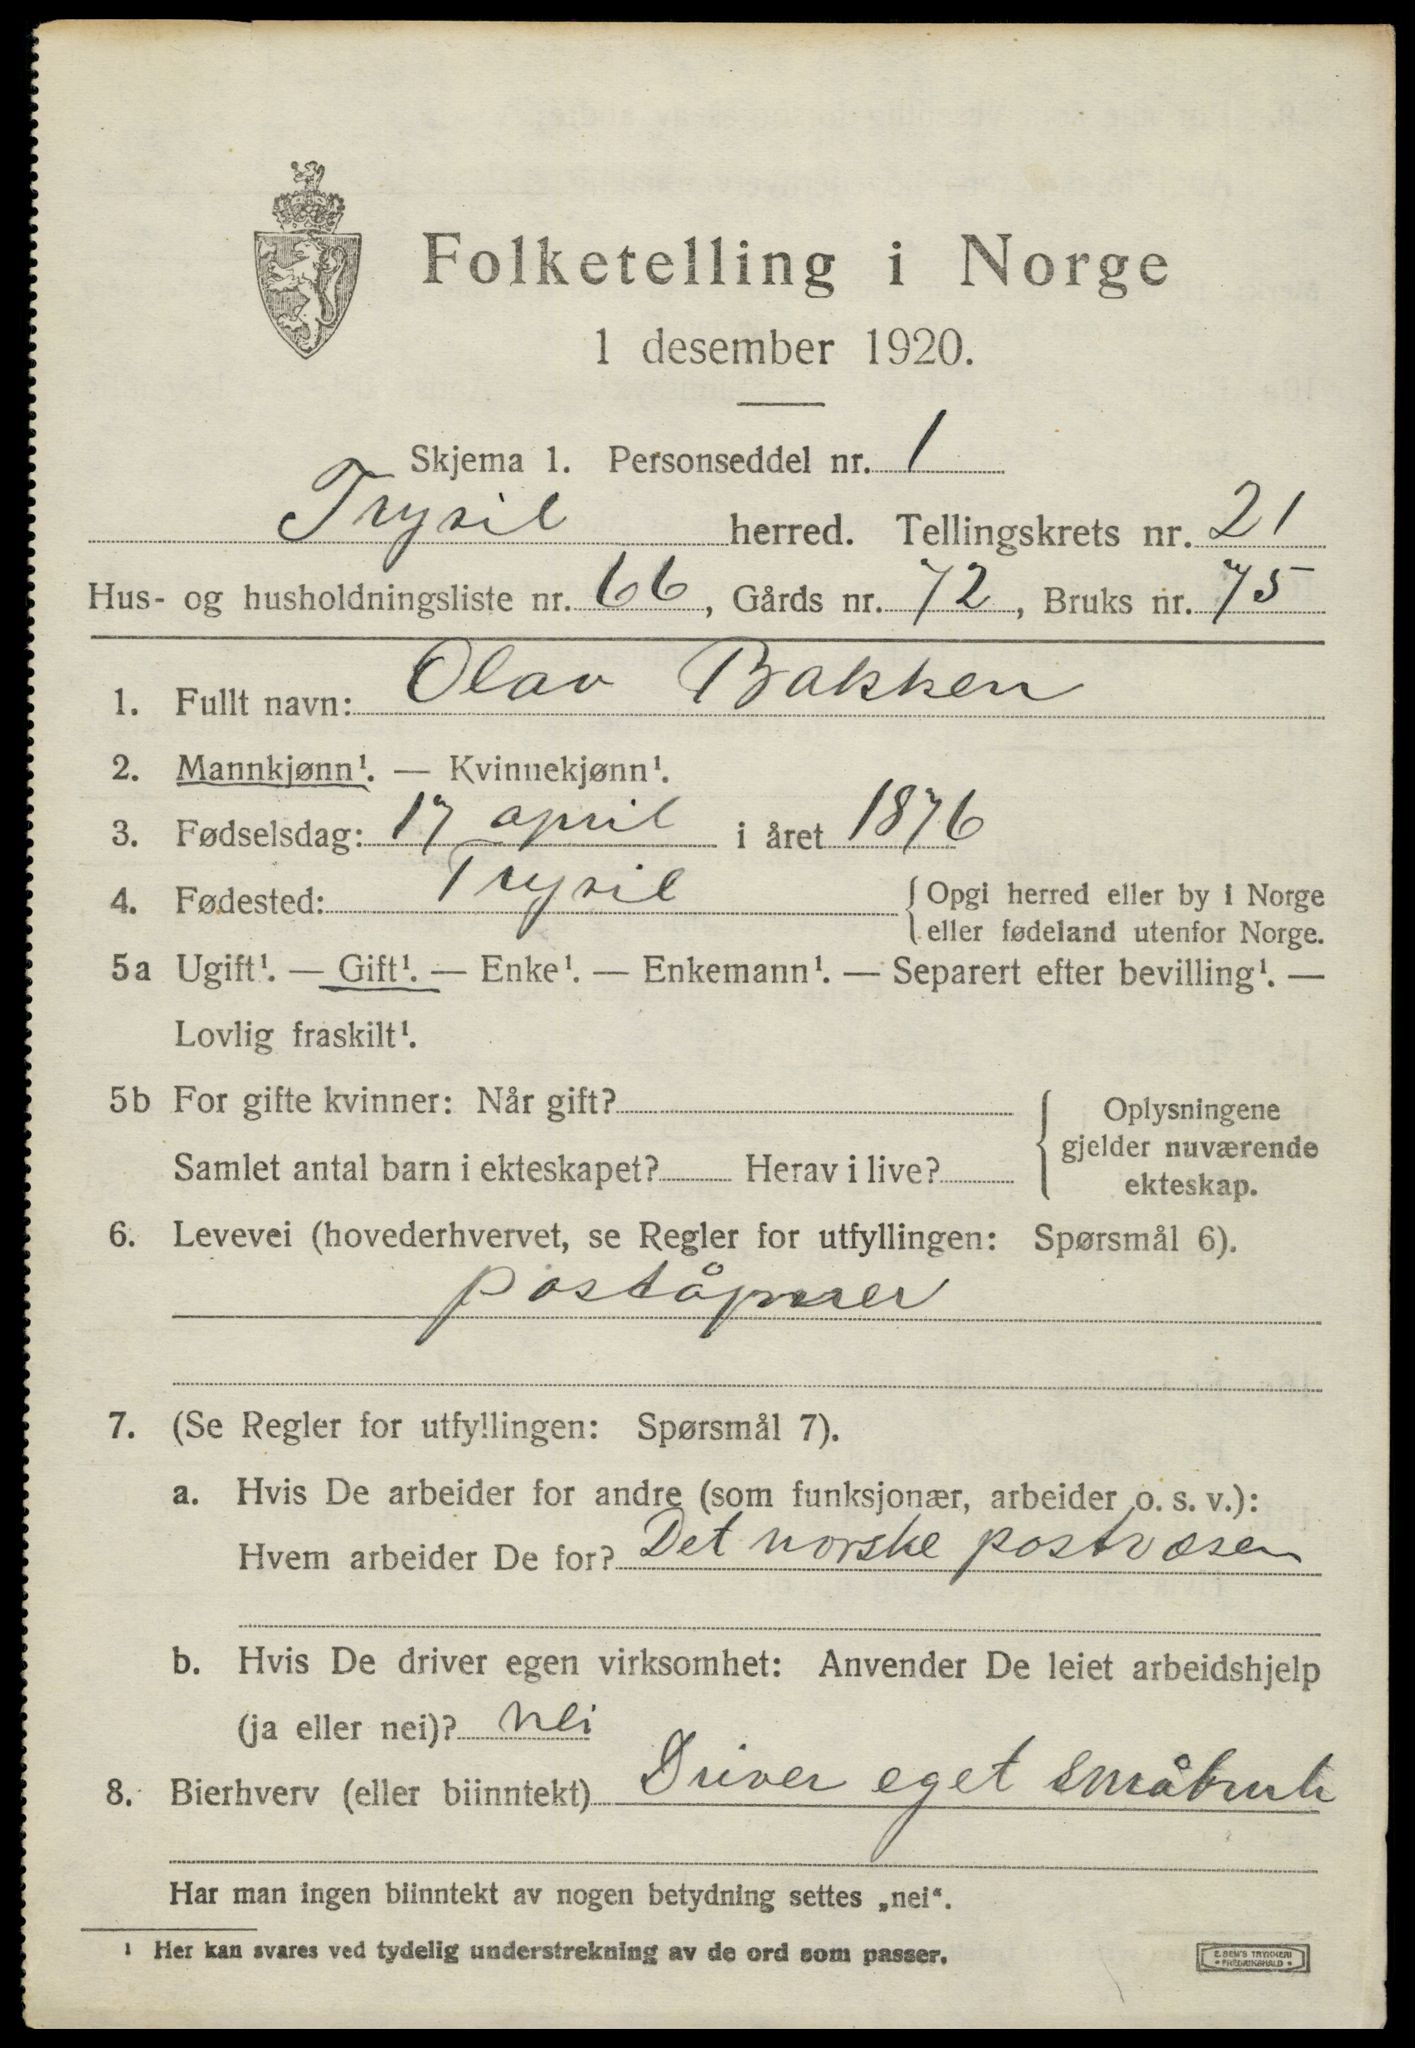 Folketelling i Norge
1 desember 1920.
Skjema 1. Personseddel nr. 1
Trysil herred. Tellingskrets nr. 21
Hus- og husholdningsliste nr. 66, Gårds nr. 72, Bruks nr. 75
1. Fullt navn: Olav Bakken
2. Mannkjønn¹. — Kvinnekjønn¹.
3. Fødselsdag: 17 april i året 1876
4. Fødested: Trysil { Opgi herred eller by i Norge
eller fødeland utenfor Norge.
5a Ugift¹. — Gift¹. — Enke¹. — Enkemann¹. — Separert efter bevilling¹. —
Lovlig fraskilt¹.
5b For gifte kvinner: Når gift? { Oplysningene
gjelder nuværende
Samlet antal barn i ekteskapet? Herav i live? ekteskap.
6. Levevei (hovederhvervet, se Regler for utfyllingen: Spørsmål 6).
poståpner
7. (Se Regler for utfyllingen: Spørsmål 7).
a. Hvis De arbeider for andre (som funksjonær, arbeider o. s. v.):
Hvem arbeider De for? Det norske postvæsen
b. Hvis De driver egen virksomhet: Anvender De leiet arbeidshjelp
(ja eller nei)? nei
8. Bierhverv (eller biinntekt) Driver eget småbruk
Har man ingen biinntekt av nogen betydning settes „nei“.
¹ Her kan svares ved tydelig understrekning av de ord som passer.
E. SEM'S TRYKKERI
* FREDRIKSHALD *